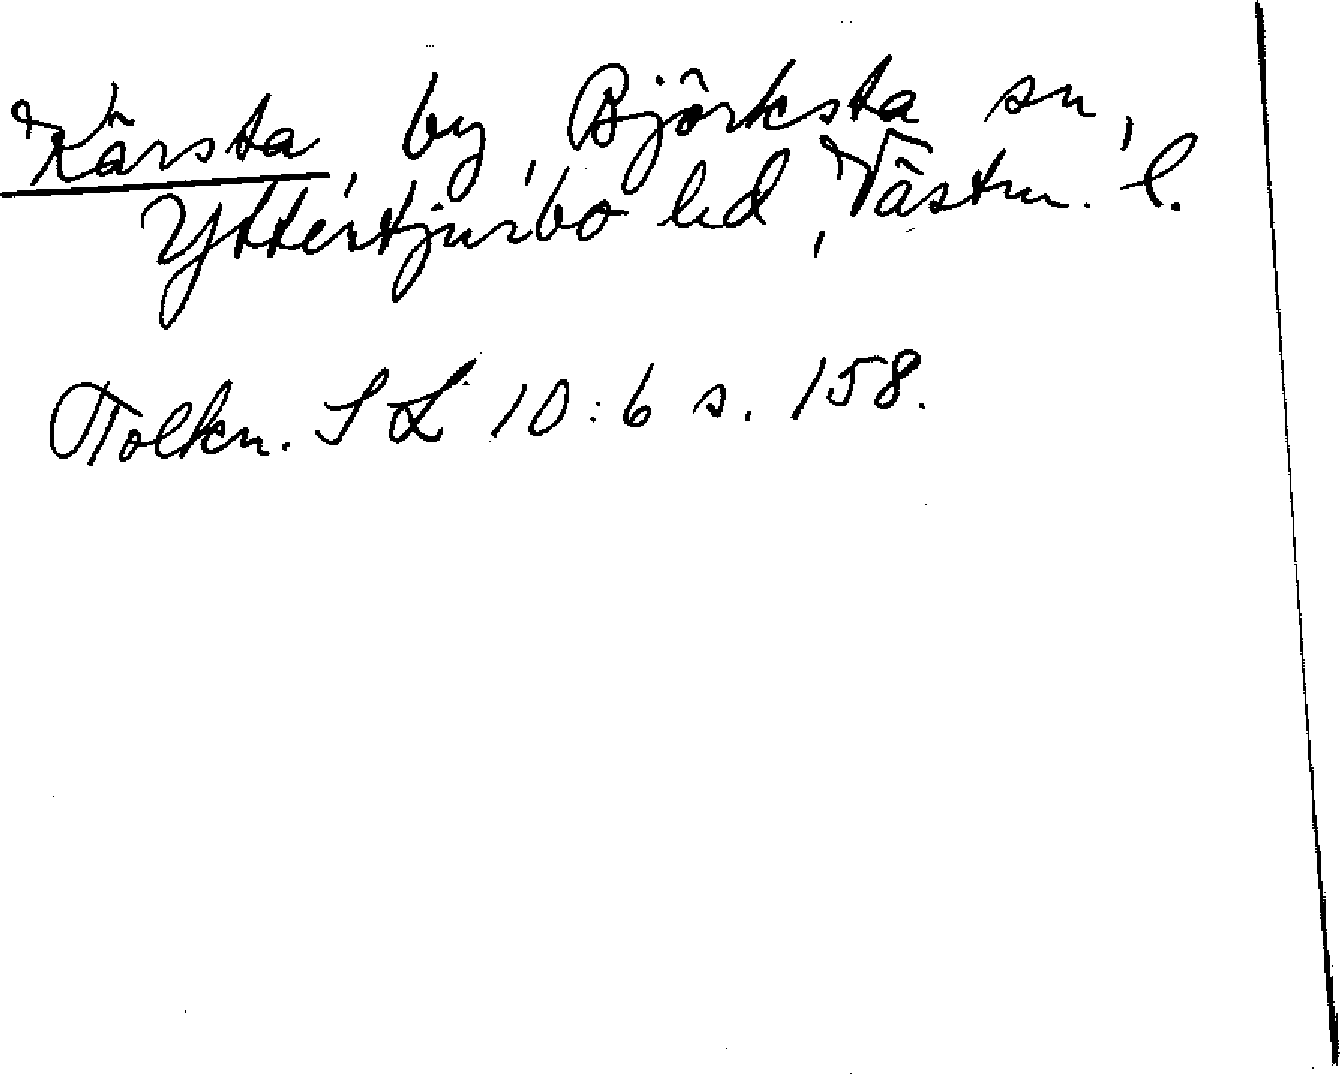 Kärsta, by, Björksta sn,
Yttertjurbo hd, Västm. l.
Tolkn. SL 10:6 s. 158.